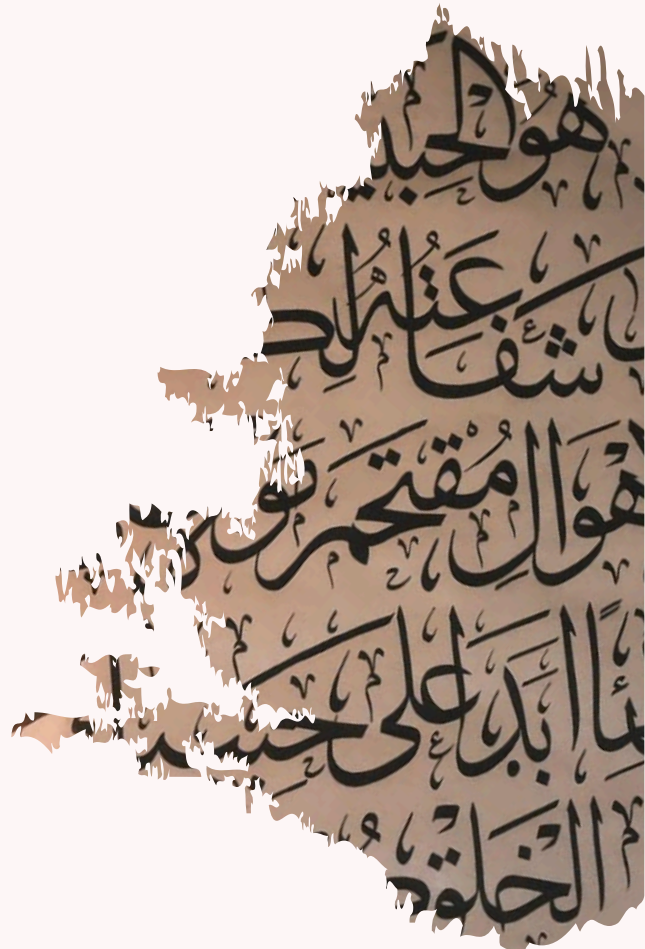 هُوَ الحَبيـ
شفَاعَتُهُ لِكـ
ـهوَالِ مُقتحِمِ
ـئماً ابَداً على حَبيـ
الخَلْقِ